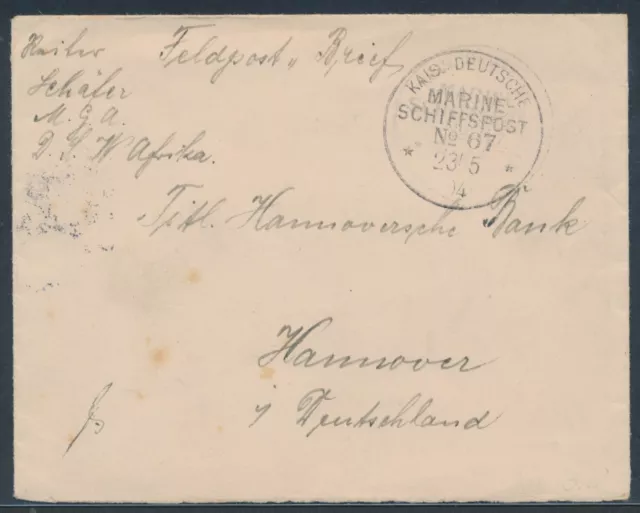 Reiter Feldpost „ Brief
Schäfer
M. G. A.
D. S. W Afrika.
KAIS. DEUTSCHE
MARINE
SCHIFFSPOST
No 67
* 23 5 *
04
Titl. Hannoversche Bank
Hannover
i/ Deutschland